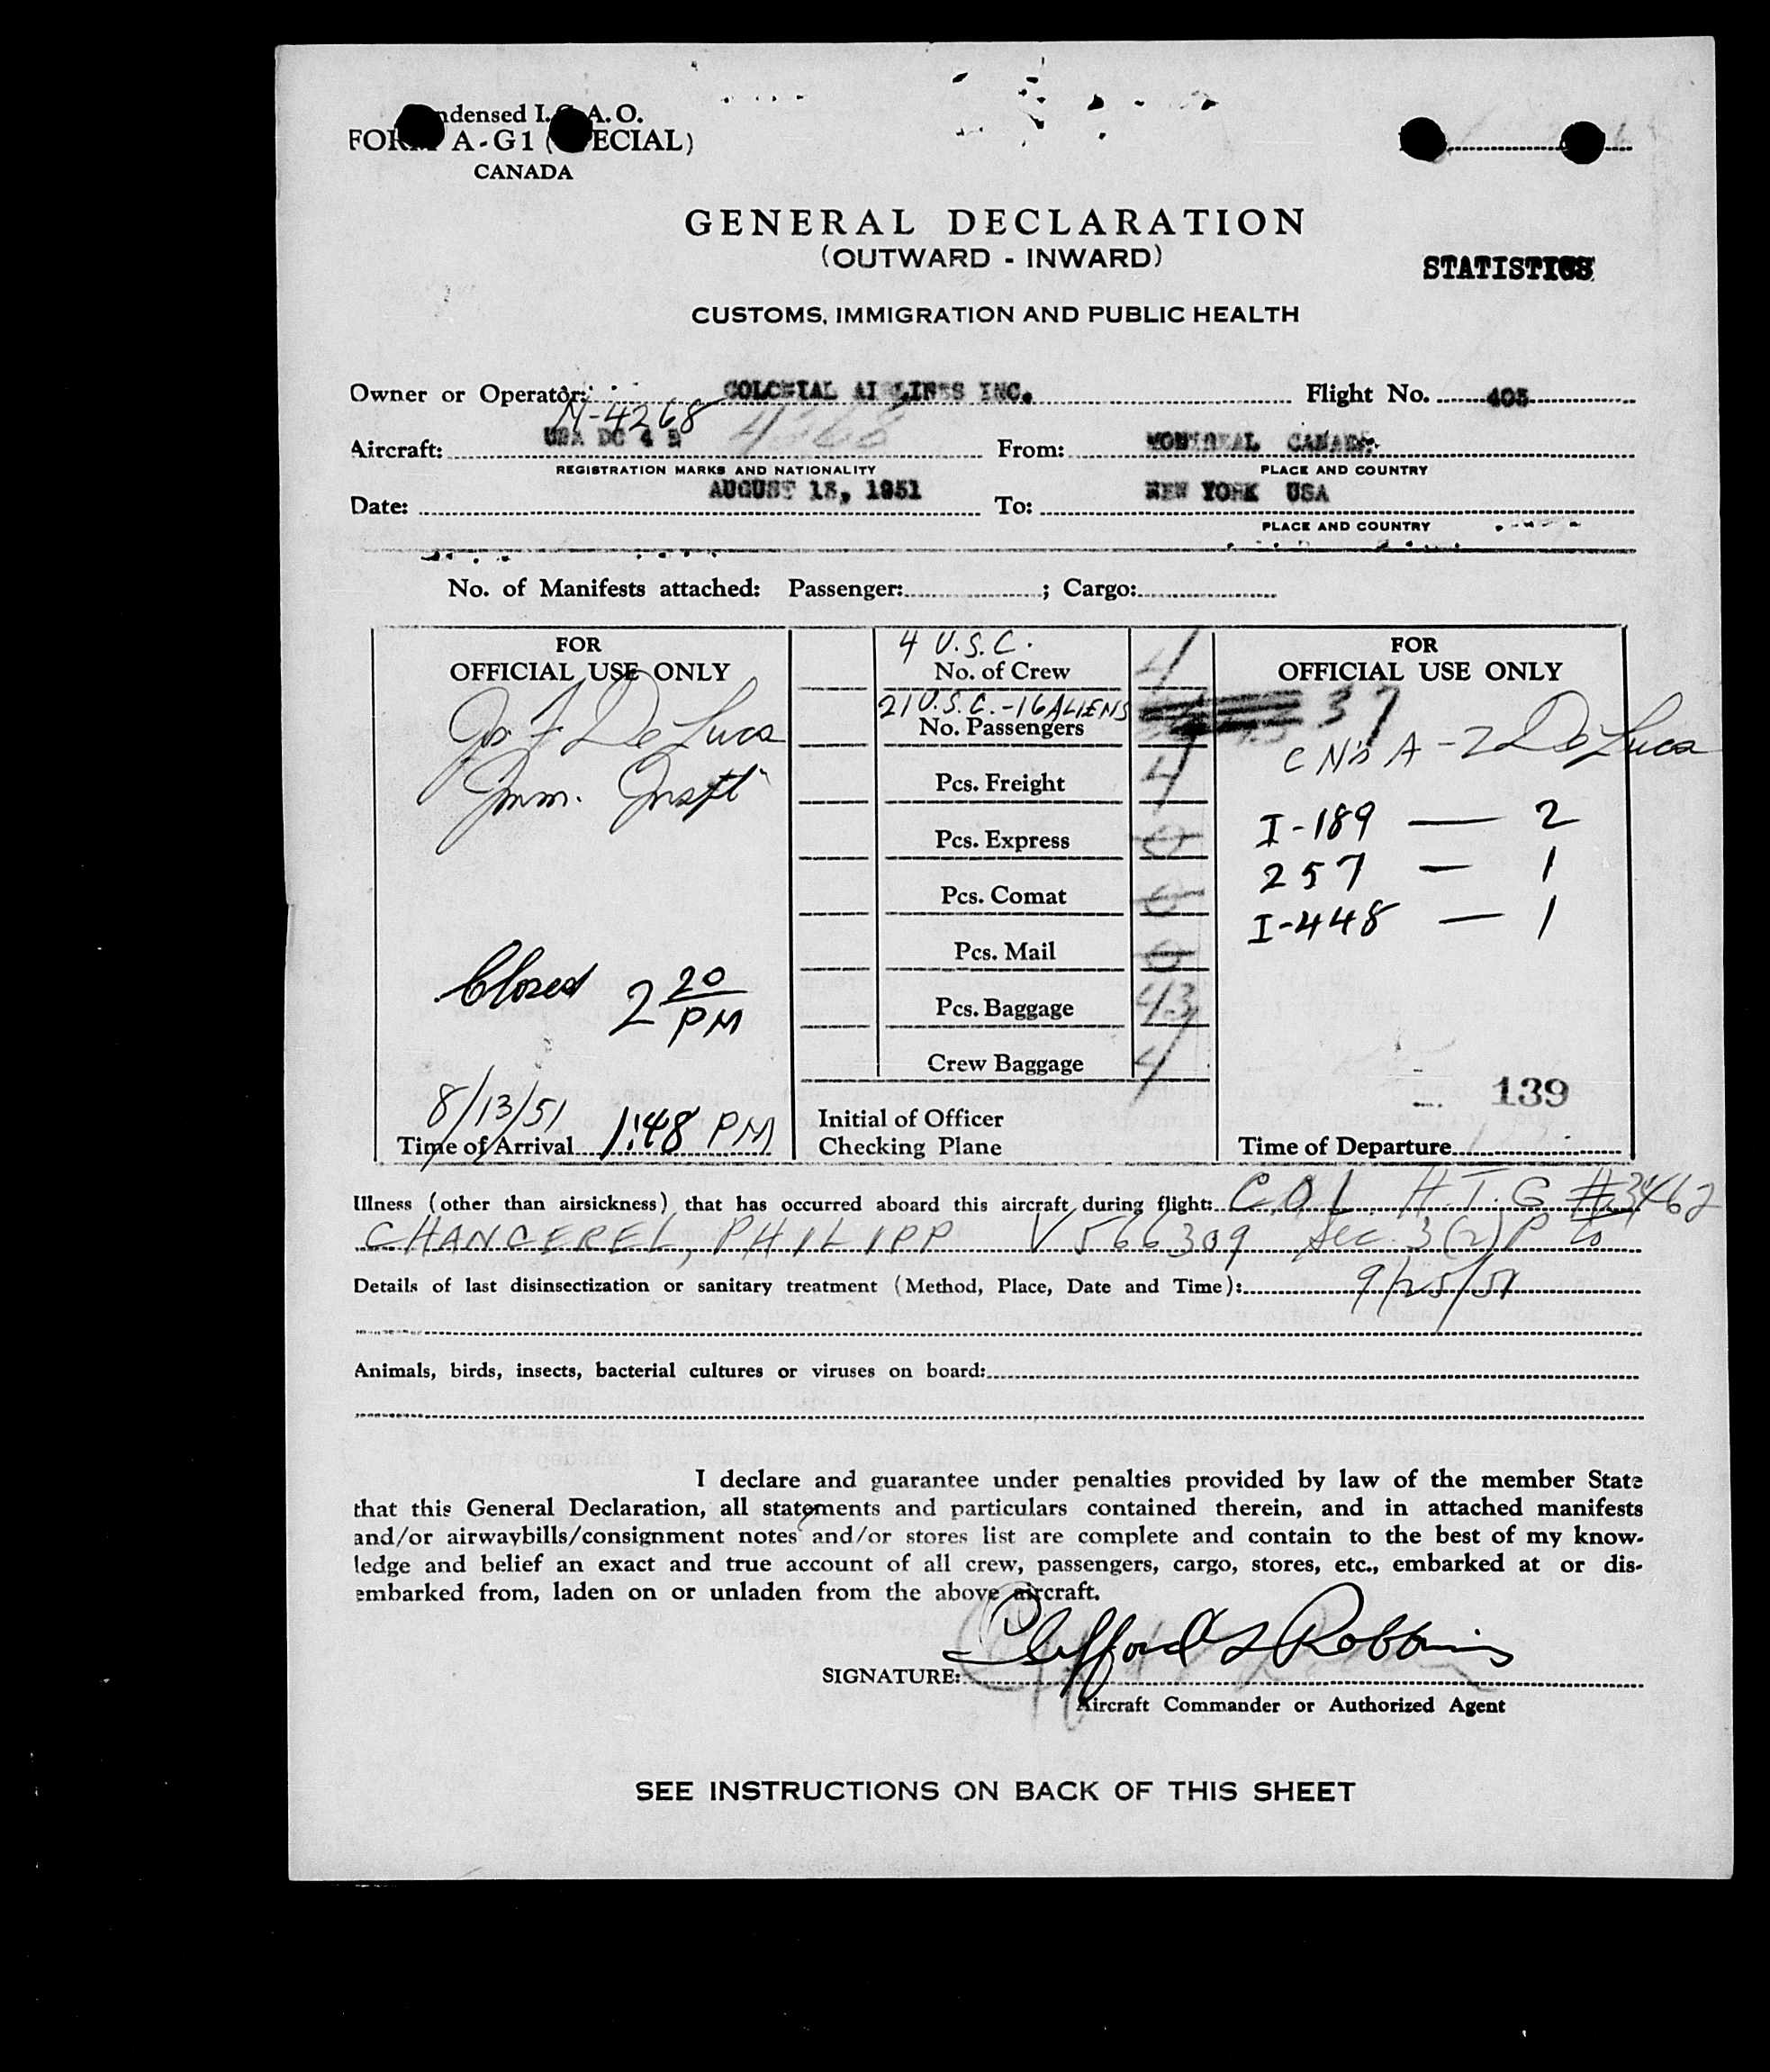 Condensed I.C.A.O.
FORM A-G1 (SPECIAL)
CANADA
GENERAL DECLARATION
(OUTWARD - INWARD)
STATISTICS
CUSTOMS, IMMIGRATION AND PUBLIC HEALTH
Owner or Operator: COLONIAL AIRLINES INC. Flight No. 403
N-4268
Aircraft: USA DC 4 From: MONTREAL CANADA
REGISTRATION MARKS AND NATIONALITY PLACE AND COUNTRY
Date: AUGUST 13, 1951 To: NEW YORK USA
PLACE AND COUNTRY
No. of Manifests attached: Passenger: ; Cargo:
FOR
OFFICIAL USE ONLY
De Luca
Imm. Inspt
Closed 2 20 PM
8/13/51
Time of Arrival 1:48 PM
4 U.S.C.
No. of Crew 4
21 U.S.C. - 16 ALIENS
No. Passengers 37
Pcs. Freight 4
Pcs. Express 0
Pcs. Comat 0
Pcs. Mail 0
Pcs. Baggage 43
Crew Baggage 4
Initial of Officer
Checking Plane
FOR
OFFICIAL USE ONLY
A-2 De Luca
I-189 — 2
257 — 1
I-448 — 1
139
Time of Departure
Illness (other than airsickness) that has occurred aboard this aircraft during flight: COL H.T.G #3462
CHANCEREL, PHILIPP V 566309 Sec. 3(2)P to
Details of last disinsectization or sanitary treatment (Method, Place, Date and Time): 9/25/51
Animals, birds, insects, bacterial cultures or viruses on board:
I declare and guarantee under penalties provided by law of the member State
that this General Declaration, all statements and particulars contained therein, and in attached manifests
and/or airwaybills/consignment notes and/or stores list are complete and contain to the best of my know-
ledge and belief an exact and true account of all crew, passengers, cargo, stores, etc., embarked at or dis-
embarked from, laden on or unladen from the above aircraft.
Clifford L Robbins
SIGNATURE:
Aircraft Commander or Authorized Agent
SEE INSTRUCTIONS ON BACK OF THIS SHEET